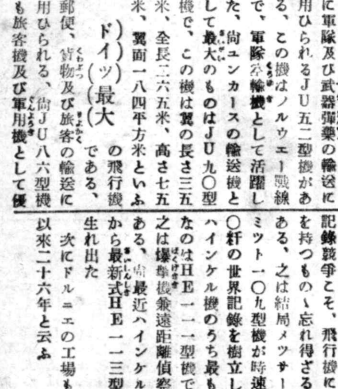 に軍隊及び武器彈藥の輸送に
用ひられるJU五二型機があ
る、この機はノルウエー戰線
で、軍隊空輸機として活躍し
た、尚ユンカースの輸送機と
して最大のものはJU九〇型
機で、この機は翼の長さ三五
米、全長二六五米、高さ七五
米、翼面一八四平方米といふ
ドイツ最大
の飛行機
である、
郵便、貨物及び旅客の輸送に
用ひられる、尚JU八六型機
も旅客機及び軍用機として優
記錄競爭こそ、飛行機に
を持つものゝ忘れ得ざる
ある、之は結局メツサ
ミツト一〇九型機が時速
〇粁の世界記錄を樹立し
ハインケル機のうち最も
なのはHE一一一型機で
之は爆擊機兼遠距離偵察
ある、尚最近ハインケル
から最新式HE一一三型
生れ出た
次にドルニエの工場も
以來二十六年と云ふ